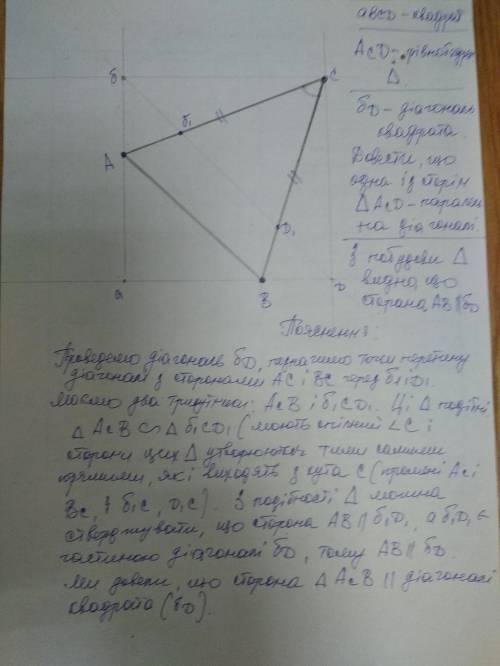 авсд - квадрат
АсD - рівнобедр
Δ.
бD - діагональ
квадрата.
Довести, що
одна із сторін
ΔАсD - парален
на діагоналі.
З побудови Δ
видно, що
сторона АВ || бD
б
С
б₁
А
D₁
а
В
D
Пояснення:
Проведемо діагональ бD, позначимо точки перетину
діагоналі з сторонами АС і ВС через б₁ і D₁.
Маємо два трикутники: АсВ і б₁СD₁. Ці Δ подібні
Δ АсВ ∽ Δ б₁СD₁ (мають спільний ∠С і
сторони цих Δ утворюються тими самими
прямими, які виходять з кута С (промені Ас і
Вс, і б₁С, D₁С). З подібності Δ можна
стверджувати, що сторона АВ || б₁D₁, а б₁D₁ є
частиною діагоналі бD, тому АВ || бD.
Ми довели, що сторона Δ АсВ || діагоналі
квадрата (бD).